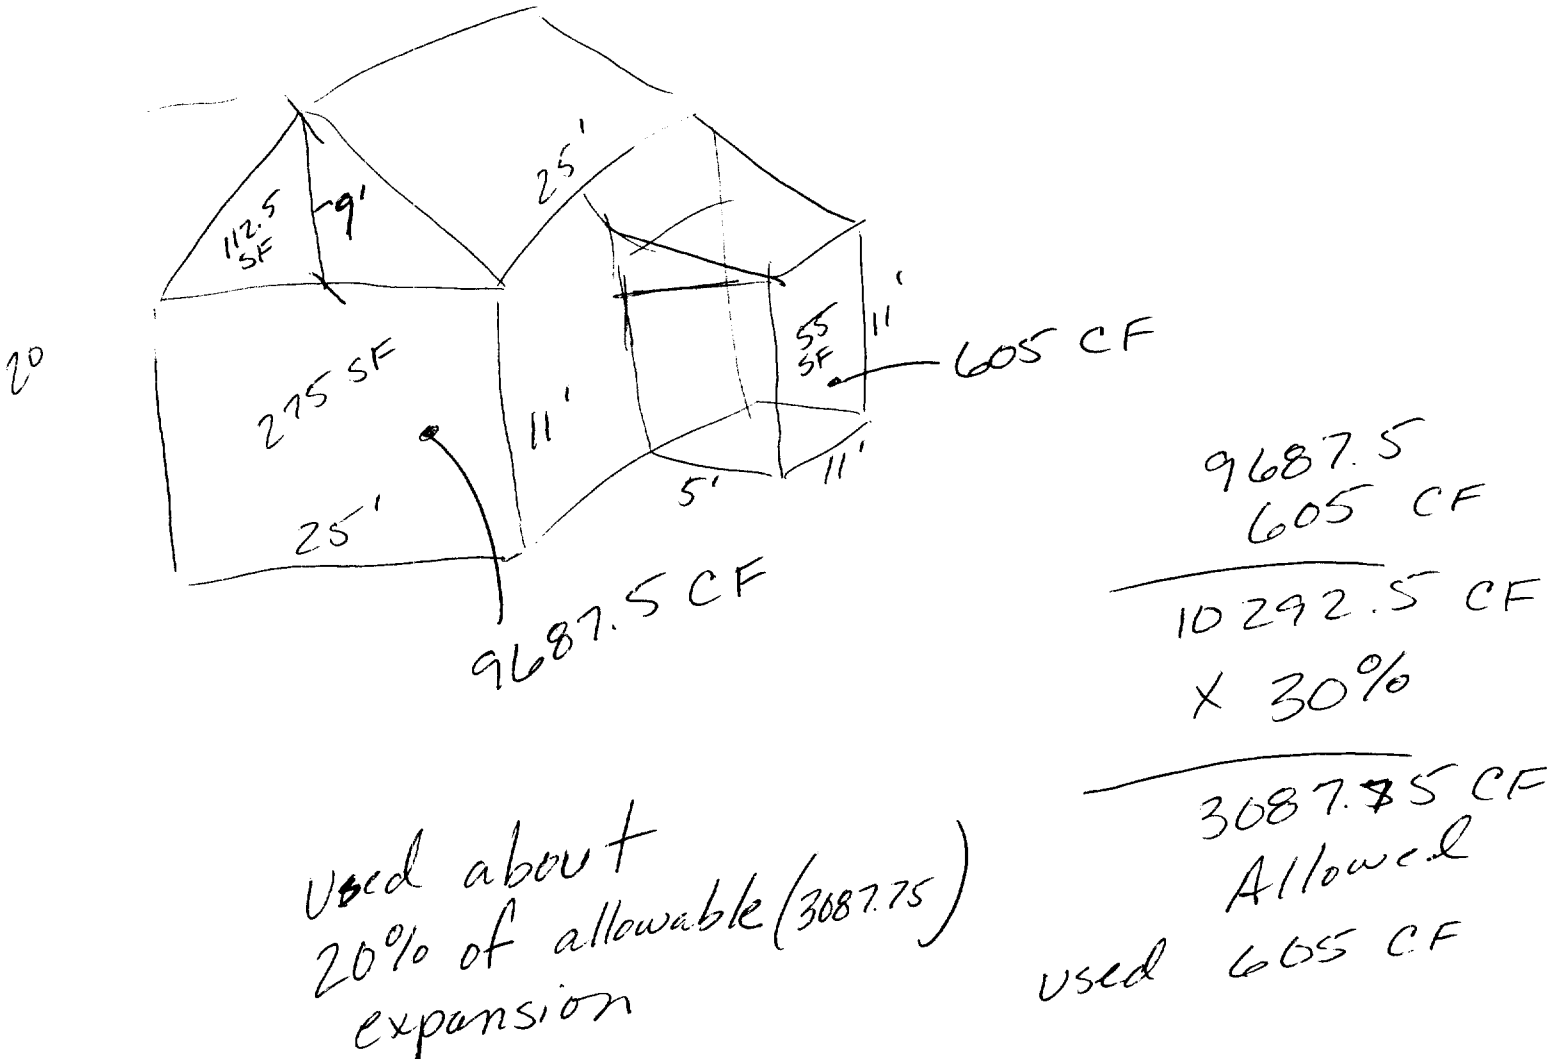 25'
112.5
SF
9'
20
275 SF
11'
25'
9687.5 CF
55
SF
11'
605 CF
5'
11'
9687.5
605 CF
10292.5 CF
X 30%
3087.75 CF
Allowed
used 605 CF
used about
20% of allowable (3087.75)
expansion